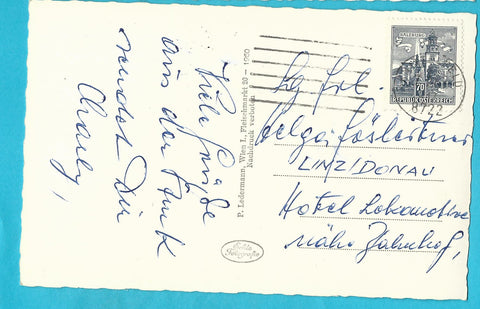 Viele Grüße
aus der
sendet Dir
Charly,
P. Ledermann, Wien I., Fleischmarkt 20 - 1960
Nachdruck verboten
Echte
Fotografie
SALZBURG
70
REPUBLIK ÖSTERREICH
8732
Helga
LINZ/DONAU
Hotel Lokomotive
nähe Bahnhof,